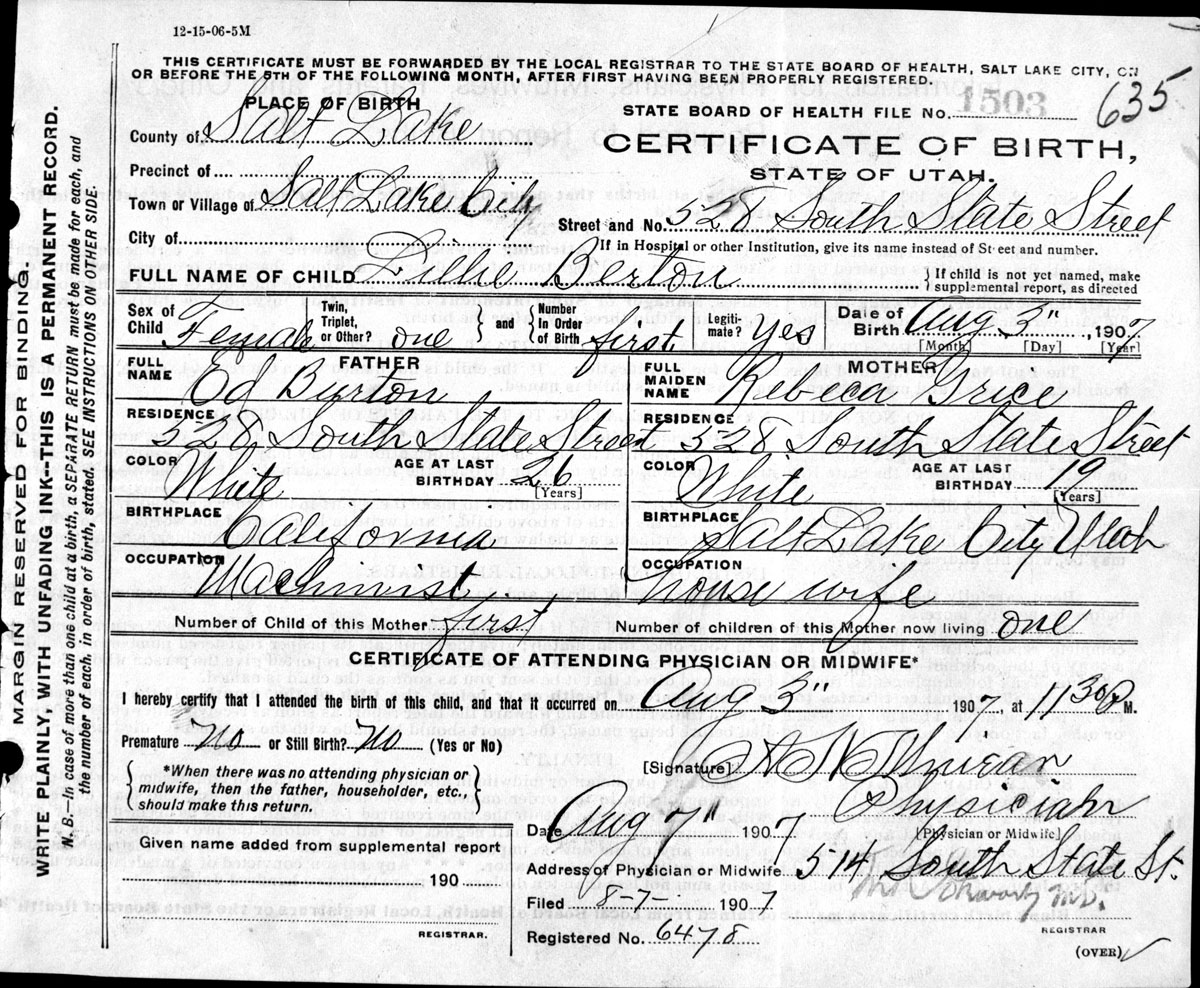 12-15-06-5M
THIS CERTIFICATE MUST BE FORWARDED BY THE LOCAL REGISTRAR TO THE STATE BOARD OF HEALTH, SALT LAKE CITY, ON
OR BEFORE THE 5TH OF THE FOLLOWING MONTH, AFTER FIRST HAVING BEEN PROPERLY REGISTERED.
PLACE OF BIRTH
STATE BOARD OF HEALTH FILE No. 1503 635
County of Salt Lake
CERTIFICATE OF BIRTH,
STATE OF UTAH.
Precinct of
Town or Village of Salt Lake City
Street and No. 528 South State Street
City of
If in Hospital or other Institution, give its name instead of Street and number.
FULL NAME OF CHILD Lillie Berton
If child is not yet named, make
supplemental report, as directed
Sex of Child Female Twin, Triplet, or Other? one and Number In Order of Birth first Legiti-mate? Yes Date of Birth Aug 3" 1907
[Month] [Day] [Year]
FATHER
FULL NAME Ed Burton
MOTHER
FULL MAIDEN NAME Rebecca Grice
RESIDENCE 528 South State Street
RESIDENCE 528 South State Street
COLOR White AGE AT LAST BIRTHDAY 26 [Years]
COLOR White AGE AT LAST BIRTHDAY 19 [Years]
BIRTHPLACE California
BIRTHPLACE Salt Lake City Utah
OCCUPATION Machinist
OCCUPATION house wife
Number of Child of this Mother first Number of children of this Mother now living one
CERTIFICATE OF ATTENDING PHYSICIAN OR MIDWIFE*
I hereby certify that I attended the birth of this child, and that it occurred on Aug 3" 1907, at 11 30 P M.
Premature No or Still Birth? No (Yes or No)
[Signature]
*When there was no attending physician or
midwife, then the father, householder, etc.,
should make this return.
Physician
[Physician or Midwife]
Date Aug 7" 1907
Given name added from supplemental report
190
REGISTRAR.
Address of Physician or Midwife 514 South State St.
Filed 8-7- 1907
M.D.
REGISTRAR
Registered No. 6478
(OVER)
MARGIN RESERVED FOR BINDING.
WRITE PLAINLY, WITH UNFADING INK--THIS IS A PERMANENT RECORD.
N. B.—In case of more than one child at a birth, a SEPARATE RETURN must be made for each, and
the number of each, in order of birth, stated. SEE INSTRUCTIONS ON OTHER SIDE.